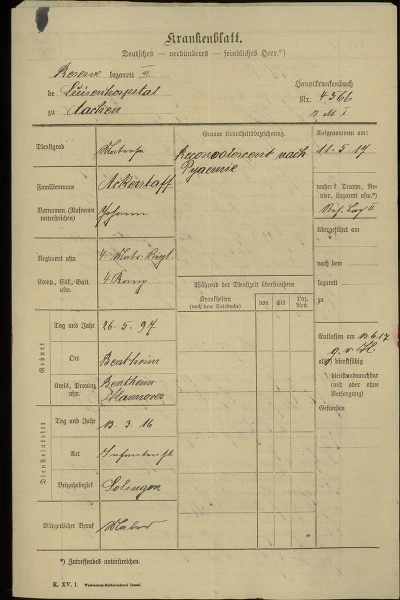 Krankenblatt.
Deutsches — verbündetes — feindliches Heer.*)
Reserve lazarett III
de Luisenhospital
zu Aachen
Hauptkrankenbuch
Nr. 4566
Dienstgrad Matrose
Genaue Krankheitsbezeichnung.
Reconvalescent nach
Pyaemie
Aufgenommen am:
11. 5. 17
Familienname Ackerstaff
Vornamen (Rufname unterstreichen) Johann
woher? Truppe, Revier, Lazarett usw.*)
übergeführt am
nach dem
lazarett
zu
Regiment usw. 4 Matr. Regt
Komp., Esk., Batt. usw. 4 Komp
Während der Dienstzeit überstandene
Krankheiten
(nach dem Soldbuch)
von bis Laz. Rev.
Geburt
Tag und Jahr 26. 5. 97
Ort Bentheim
Kreis, Provinz usw. Bentheim
Hannover
Entlassen am 13.6.17
als dienstfähig
dienstunbrauchbar
(mit oder ohne
Versorgung)
Gestorben
Diensteintritt
Tag und Jahr 13. 3. 16
Art
Aushebebezirk Solingen
Bürgerlicher Beruf
*) Zutreffendes unterstreichen.
K. XV. 1.